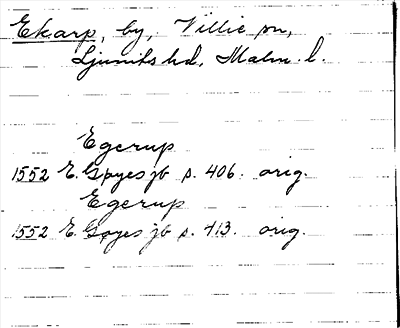 Ekarp, by, Villie sn,
Ljunits hd, Malm. l.
Egerup
1552 E. Gøyes jb s. 406. orig.
Egerup
1552 E. Gøyes jb s. 413. orig.